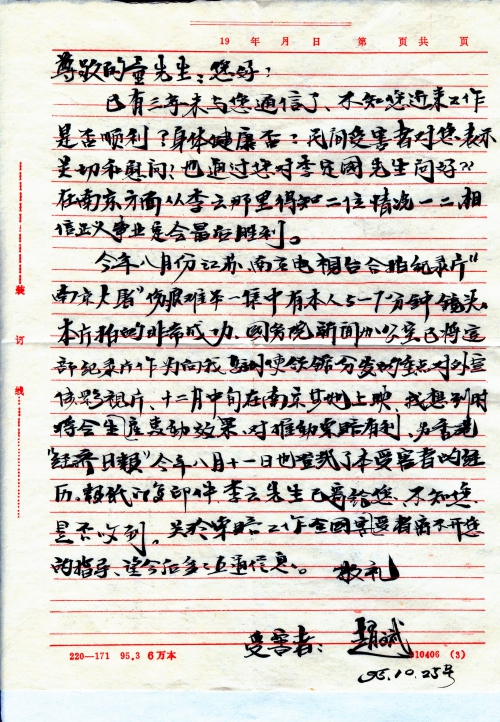 19 年 月 日 第 页共 页
尊敬的童先生：您好！
已有三年未与您通信了、不知您近来工作
是否顺利？身体健康否？民间受害者对您表示
关切和慰问！也通过您对李定國先生问好??
在南京方面从李云那里得知二位情况一二、相
信正义事业定会最后胜利。
今年八月份江苏、南京电视台合拍纪录片“
南京大屠”
一集中有本人5—7分钟镜头。
本片拍的非常成功、國务院新闻办公室已将这
部纪录片作为向我
使领馆分发的重点对外宣
传影视片、十二月中旬在南京其他上映、我想到时
将会生
轰动效果、对推动索赔有利、另香港
“经济日报”今年八月十一日也登载了本受害者的经
历、报纸复印件李云先生已寄给您、不知您
是否收到。关於索赔工作全國受害者离不开您
的指导、望今后多多互通信息。 敬礼
受害者：
95.10.25号
装
订
线
220—171 95.3 6万本
10406 (3)